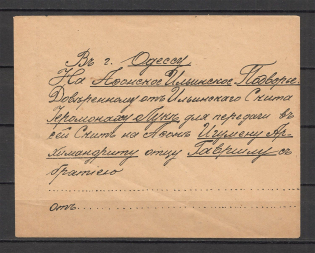 Въ г. Одессу
На Афонское Ильинское Подворье
Довѣренному отъ Ильинскаго Скита
Іеромонаху Лукѣ для передачи въ
сей Скитъ на Афонъ Игумену Ар-
химандриту отцу Гавріилу съ
братіею
отъ